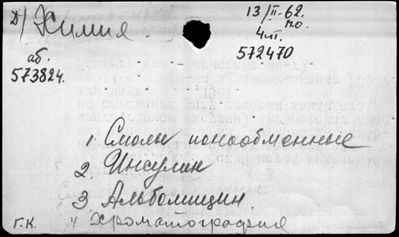 Д/ Химия.
13/II-62.
м.о.
4 п.
аб.
573824.
572470
1 Смолы ионообменные
2 Инсулин
3 Альбомицин.
4 Хроматография
Г.К.